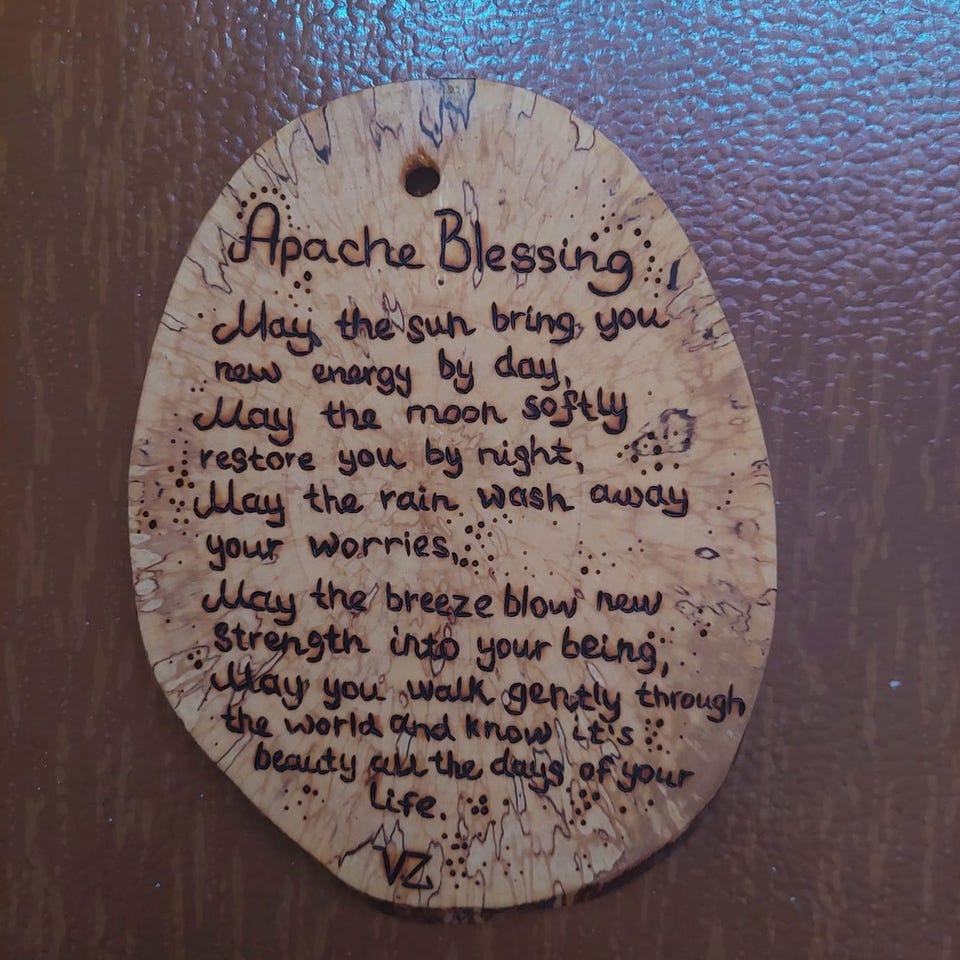 Apache Blessing
May the sun bring you
new energy by day,
May the moon softly
restore you by night,
May the rain wash away
your worries,
May the breeze blow new
strength into your being,
May you walk gently through
the world and know it's
beauty all the days of your
life.
VZ